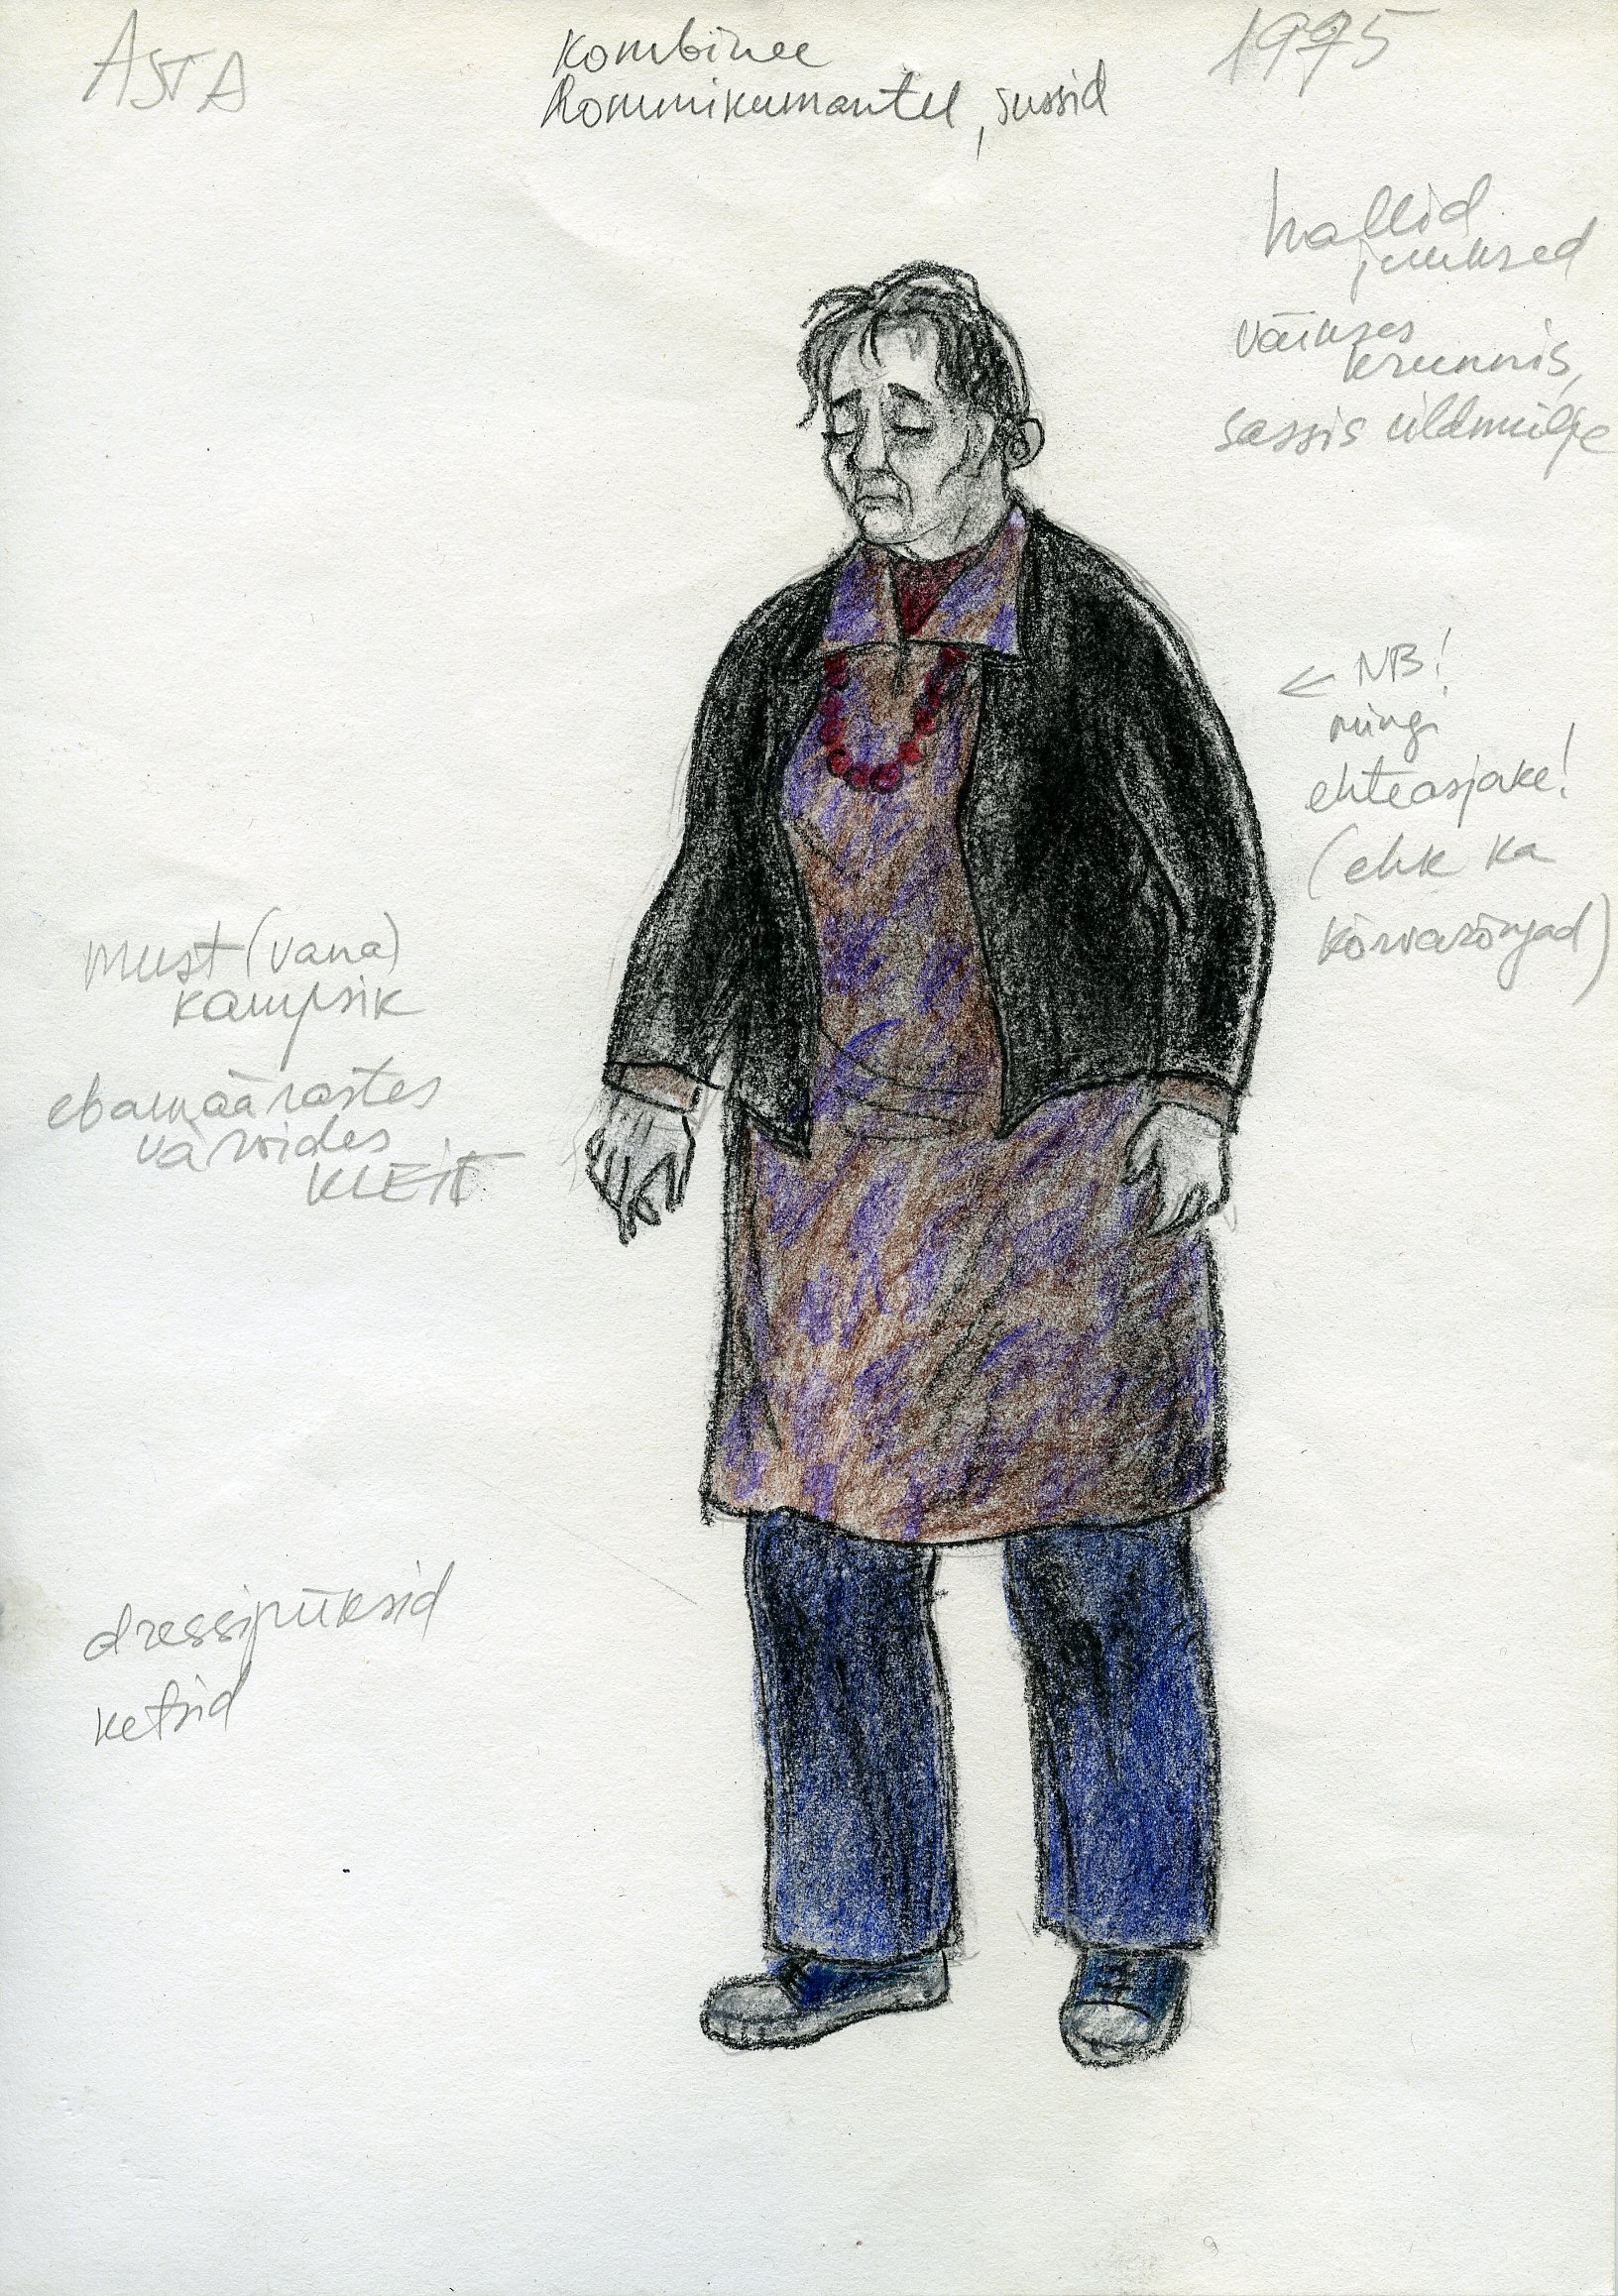 ASTA
kombinee
hommikumantel, sussid
1995
hallid
juuksed
väikses
krunnis,
sassis üldmulje
← NB!
mingi
ehteasjake!
(ehk ka
kõrvarõngad)
must (vana)
kampsik
ebamäärastes
värvides
KLEIT
dressipüksid
ketsid